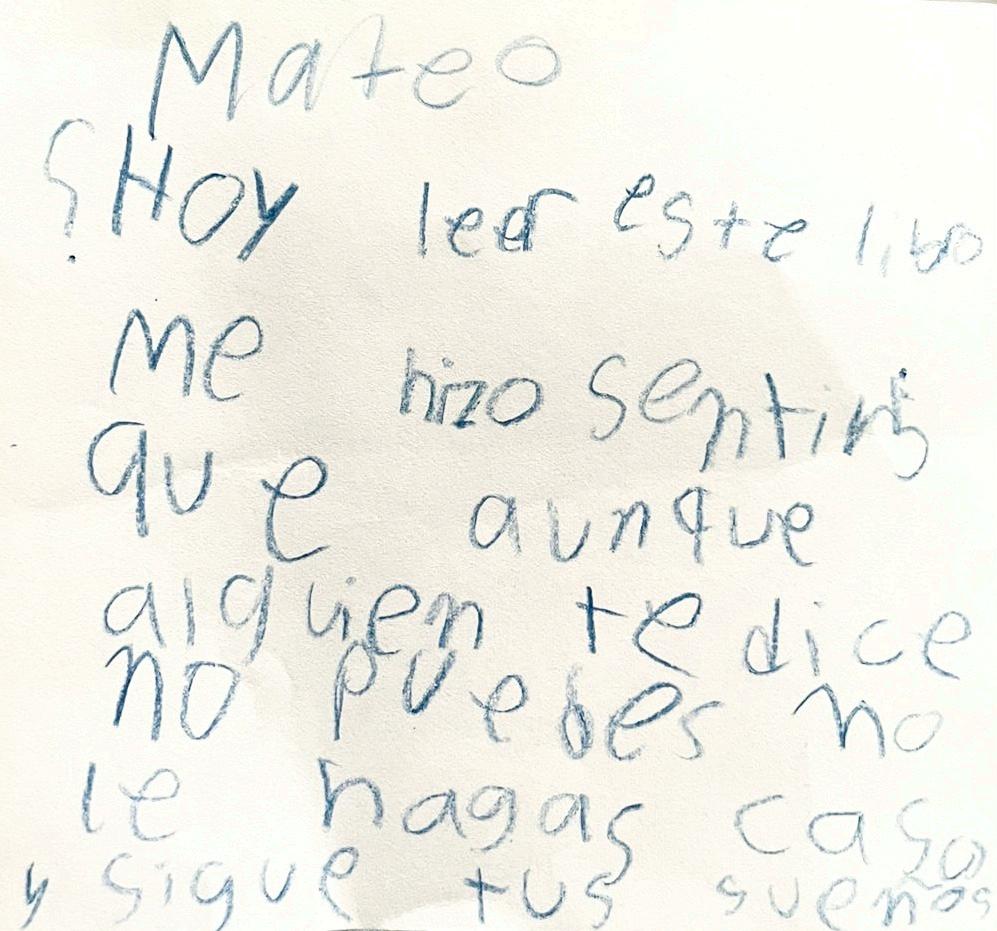 Mateo
¿Hoy leer este libo
me hizo sentir
que aunque
alguien te dice
no puedes no
le hagas caso
y sigue tus sueños